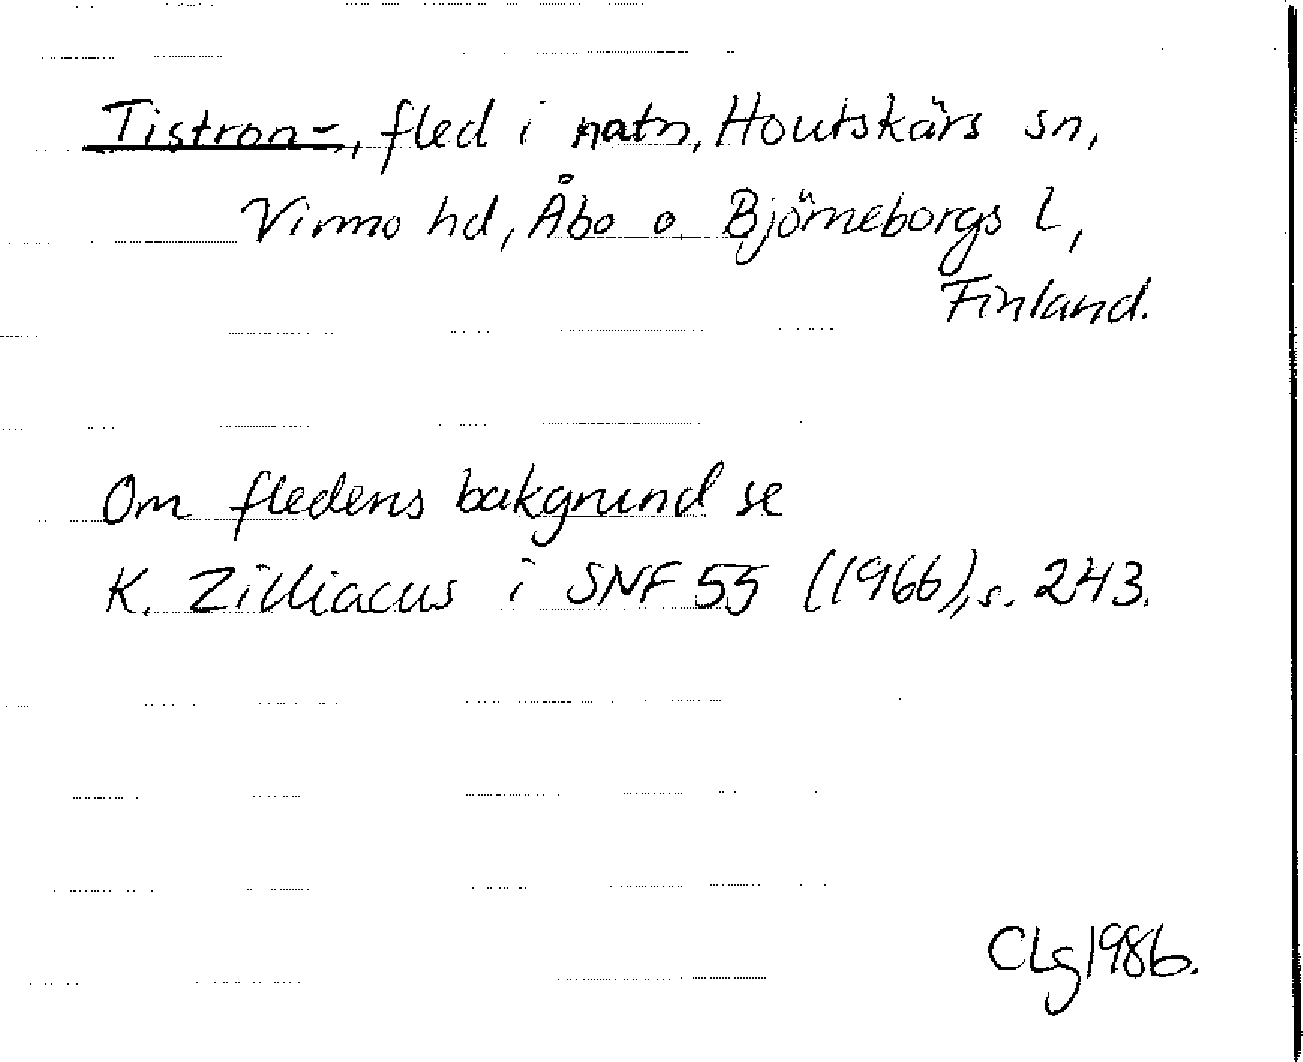 Tistron-, fled i natn, Houtskärs sn,
Virmo hd, Åbo o Björneborgs l,
Finland.
Om fledens bakgrund se
K. Zilliacus i SNF 55 (1966), s. 243.
CLg 1986.